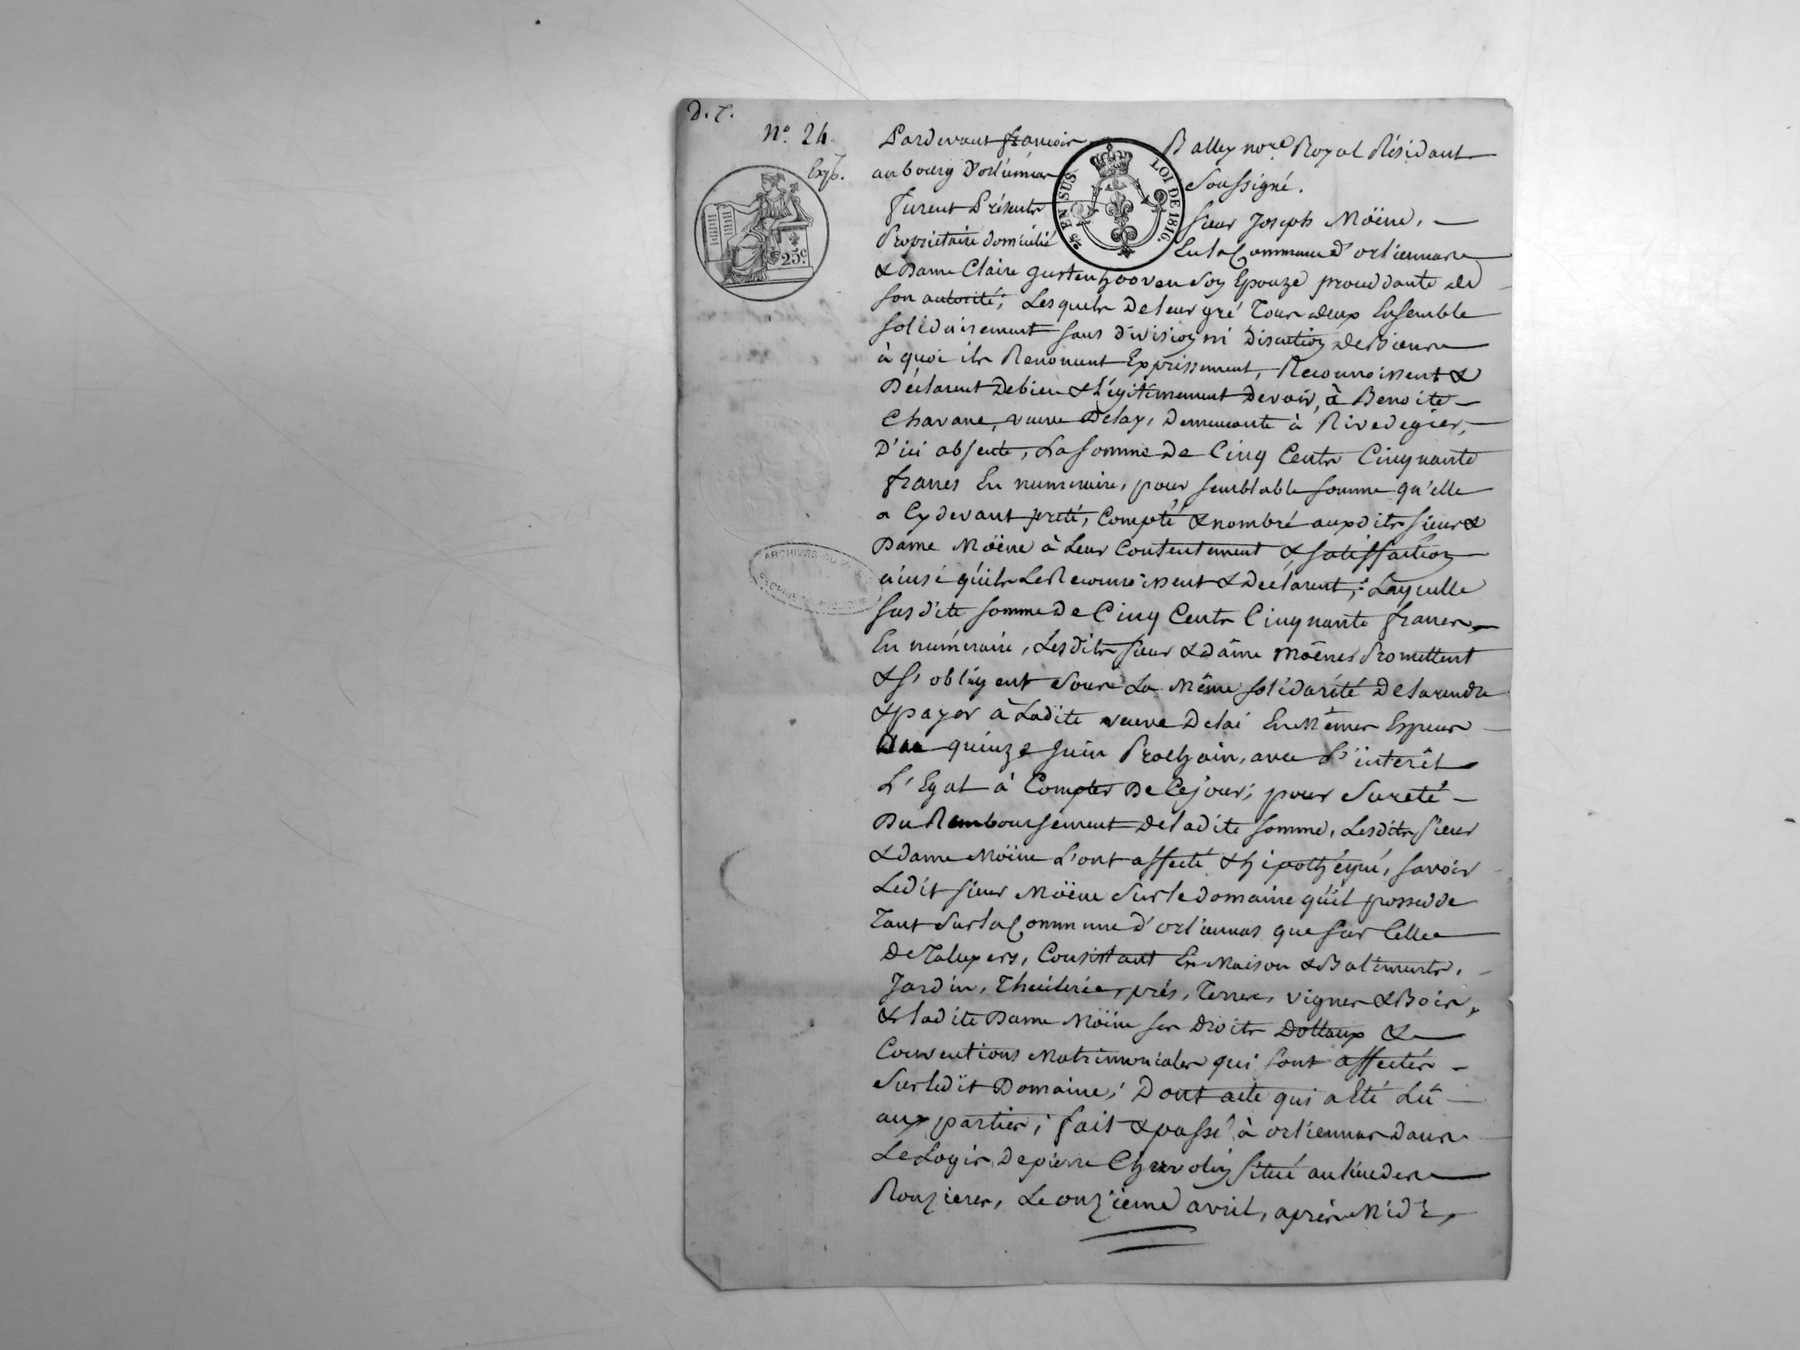 D. T.
N.° 24.
Exp.
25.c
2/5 EN SUS.
LOI DE 1816.
ARCHIVES DU
Pardevant francois Balley no.re Royal Résidant
au bourg d'orliénas Soussigné.
Furent Présents sieur Joseph Moïne,
Propriétaire domicilié En la Commune d'orliennas
& Dame Claire Gustenhooven Son Epouze procédante de
son autorité; Lesquels de leur gré Tous deux Ensemble
solidairement sans division ni Discution de Biens
à quoi ils Renoncent Expressement, Reconnoissent &
Déclarent de bien & légitimement devoir, à Benoite
Chavane, veuve Delay, demeurante à Rivedegier,
D'ici absente, La somme de Cinq Cents Cinquante
francs En numéraire, pour semblable somme qu'elle
a Cy devant preté, Compté & nombré auxdits sieur &
Dame Moïne à Leur Contentement & satisfaction
ainsi qu'ils Le Reconnoissent & Déclarent; Laquelle
susdite somme de Cinq Cents Cinquante francs
En numéraire, Lesdits sieur & dame Moënes Promettent
& s'obligent sous La Même solidarité de la rendre
& payer à Ladite veuve Delai En Mêmes Espèces
quinze Juin Prochain, avec L'intérêt
L'Egal à Compter de Ce jour; pour Sureté
Du Remboursement de ladite somme, Lesdits sieur
& dame Moïne L'ont affecté & hipothéqué, savoir
Ledit sieur Moïne sur le domaine qu'il possedde
Tant sur la Commune d'orliennas que sur Celle
De Taluyers, Consistant En Maison & Batiments,
Jardin, Thuilerie, prés, Terres, vignes & Bois,
& ladite Dame Moïne ses Droits Dottaux &
Conventions Matrimoniales qui sont affectés
Sur ledit Domaine; Dont acte qui a Eté Lû
aux parties; fait & passé à orliennas dans
Le Logis de pierre Chervolin situé au lieu des
Rouzieres, Le onzieme avril, après Midi,